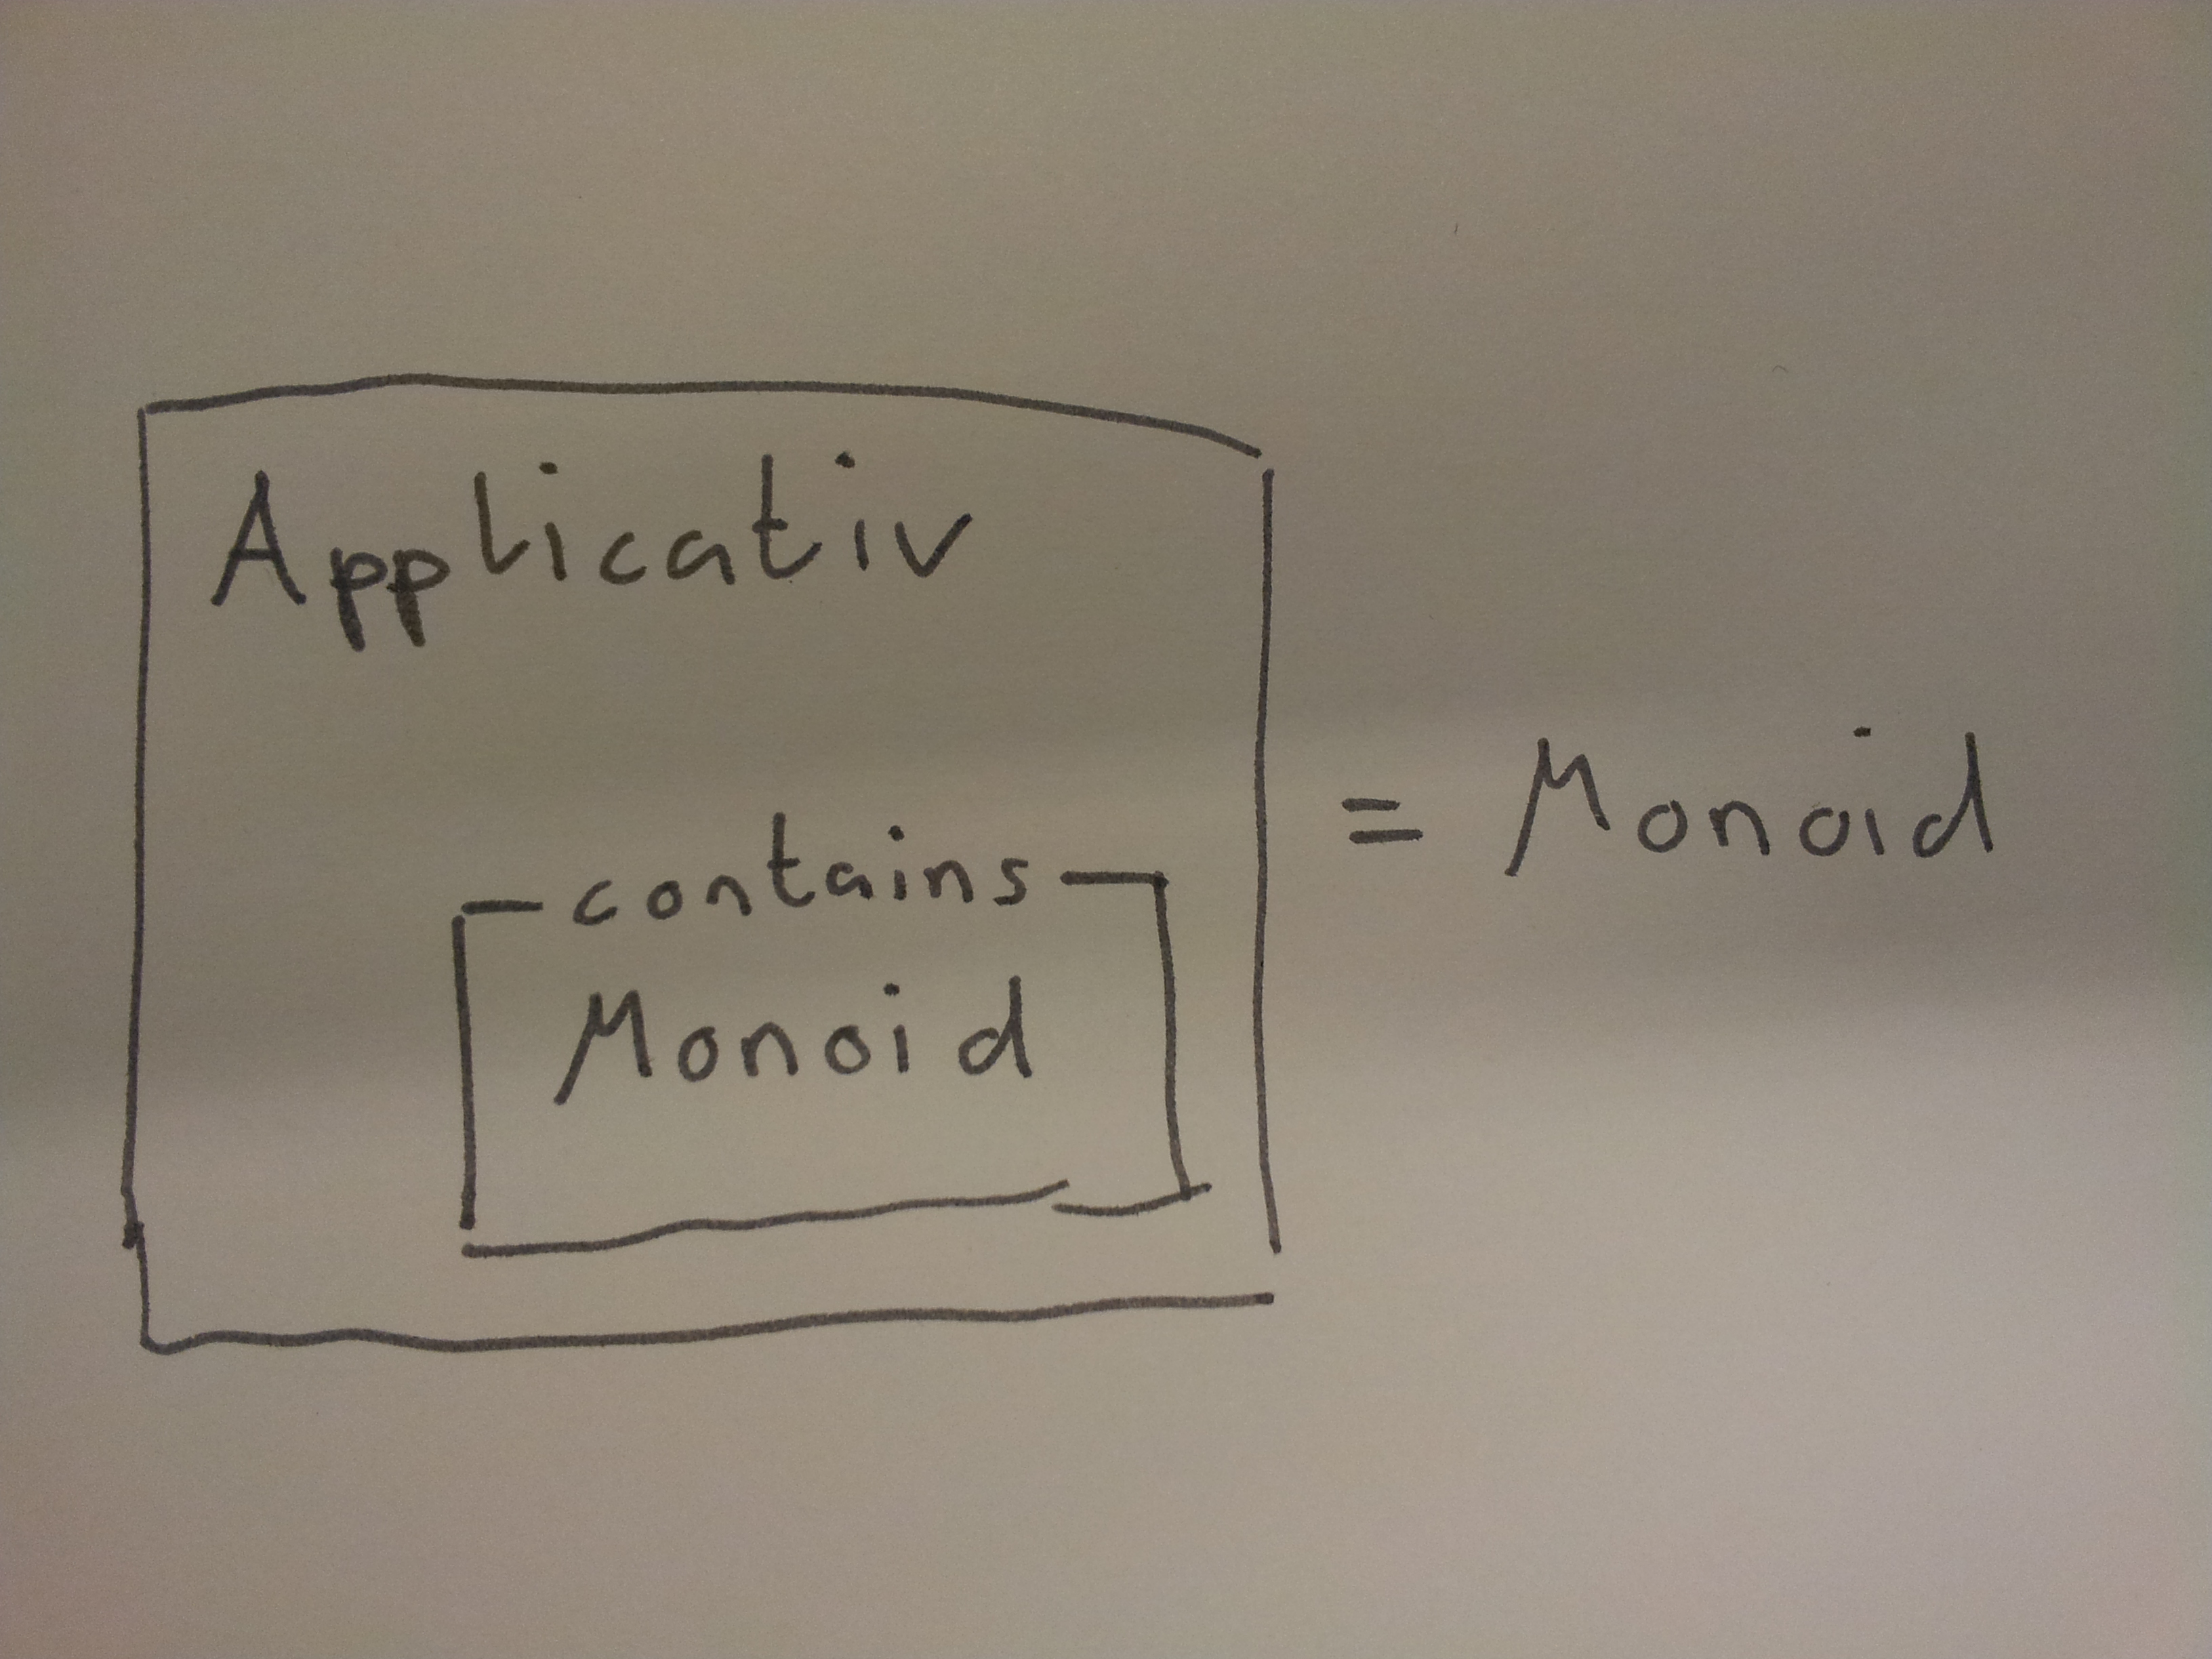 Applicativ
contains
Monoid
= Monoid